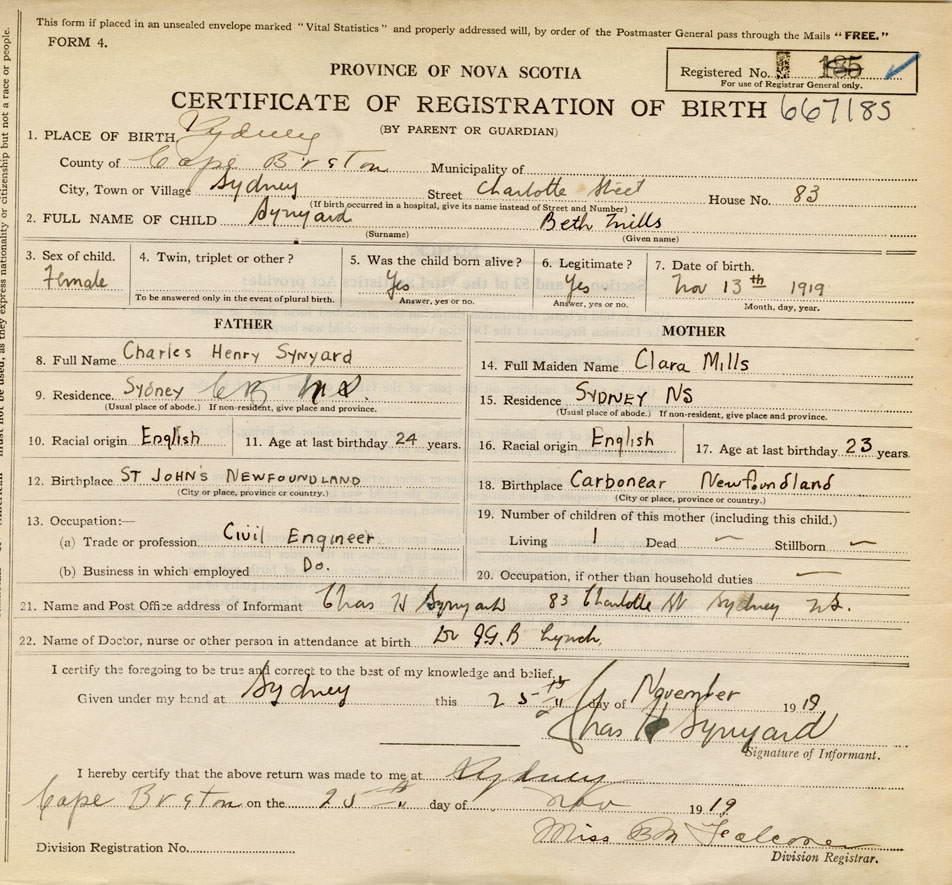 This form if placed in an unsealed envelope marked "Vital Statistics" and properly addressed will, by order of the Postmaster General pass through the Mails "FREE."
FORM 4.
PROVINCE OF NOVA SCOTIA
Registered No. 185
For use of Registrar General only.
CERTIFICATE OF REGISTRATION OF BIRTH 667185
(BY PARENT OR GUARDIAN)
1. PLACE OF BIRTH Sydney
County of Cape Breton Municipality of
City, Town or Village Sydney Street Charlotte Street House No. 83
(If birth occurred in a hospital, give its name instead of Street and Number)
2. FULL NAME OF CHILD Synyard Beth Mills
(Surname) (Given name)
3. Sex of child. Female
4. Twin, triplet or other?
To be answered only in the event of plural birth.
5. Was the child born alive? Yes
Answer, yes or no.
6. Legitimate? Yes
Answer, yes or no.
7. Date of birth. Nov 13th 1919
Month, day, year.
FATHER
8. Full Name Charles Henry Synyard
9. Residence. Sydney C B N S.
(Usual place of abode.) If non-resident, give place and province.
10. Racial origin English 11. Age at last birthday 24 years.
12. Birthplace ST JOHN'S NEWFOUNDLAND
(City or place, province or country.)
13. Occupation:—
(a) Trade or profession Civil Engineer
(b) Business in which employed Do.
MOTHER
14. Full Maiden Name Clara Mills
15. Residence SYDNEY NS
(Usual place of abode.) If non-resident, give place and province.
16. Racial origin English 17. Age at last birthday 23 years.
18. Birthplace Carbonear Newfoundland
(City or place, province or country.)
19. Number of children of this mother (including this child.)
Living 1 Dead — Stillborn —
20. Occupation, if other than household duties —
21. Name and Post Office address of Informant Chas H Synyard 83 Charlotte St Sydney N.S.
22. Name of Doctor, nurse or other person in attendance at birth Dr J.G.B Lynch.
I certify the foregoing to be true and correct to the best of my knowledge and belief.
Given under my hand at Sydney this 25th day of November 1919
Chas H Synyard
Signature of Informant.
I hereby certify that the above return was made to me at Sydney
Cape Breton on the 25th day of Nov 1919
Miss B M
Division Registration No. Division Registrar.
must not be used, as they express nationality or citizenship but not a race or people.